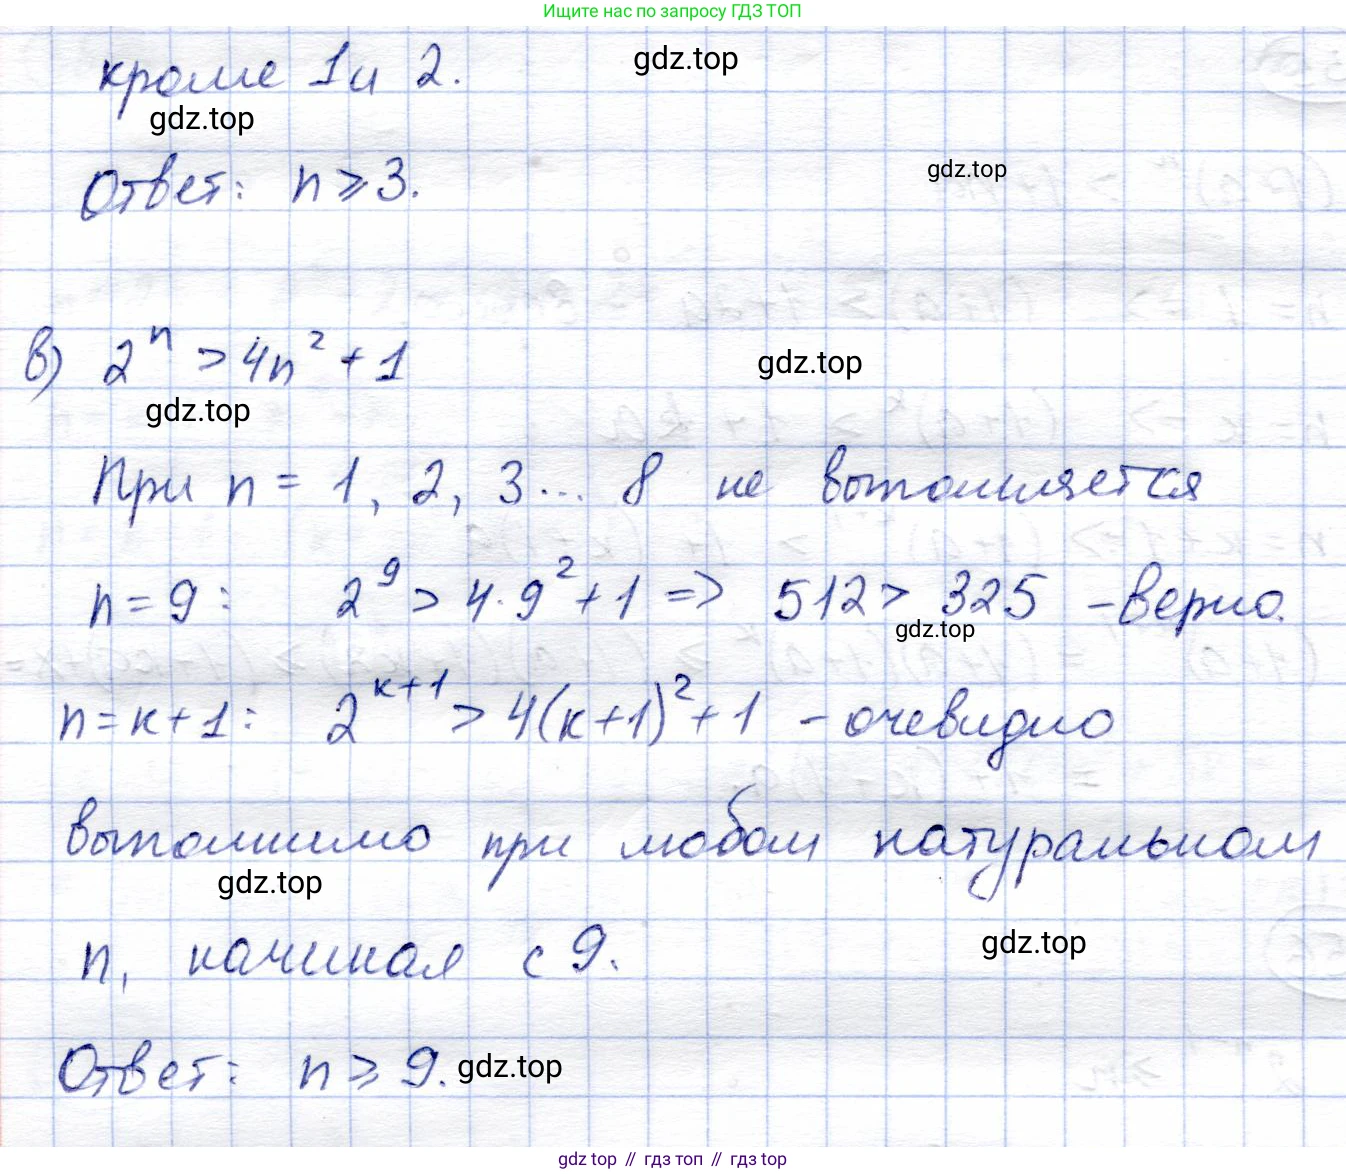 Ищите нас по запросу ГДЗ ТОП
кроме 1 и 2.
gdz.top
gdz.top
Ответ: n ⩾ 3.
gdz.top
в) 2ⁿ > 4n² + 1
gdz.top
gdz.top
При n = 1, 2, 3 ... 8 не выполняется
n = 9: 2⁹ > 4·9² + 1 => 512 > 325 – верно.
gdz.top
n = к + 1: 2ᵏ⁺¹ > 4(к+1)² + 1 – очевидно
выполнимо при любом натуральном
gdz.top
n, начиная с 9.
gdz.top
Ответ: n ⩾ 9.
gdz.top
gdz top // гдз топ // гдз top